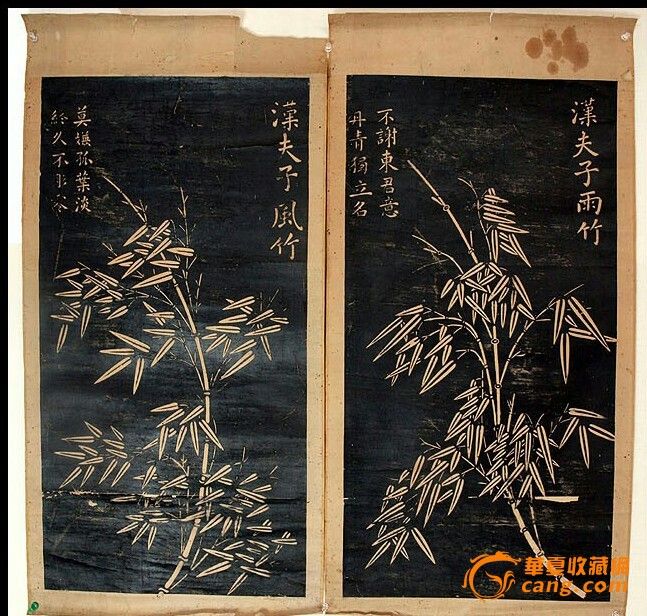 漢夫子雨竹
不謝東君意
丹青獨立名
漢夫子風竹
莫嫌孤葉淡
終久不彫零
華夏收藏網
cang.com